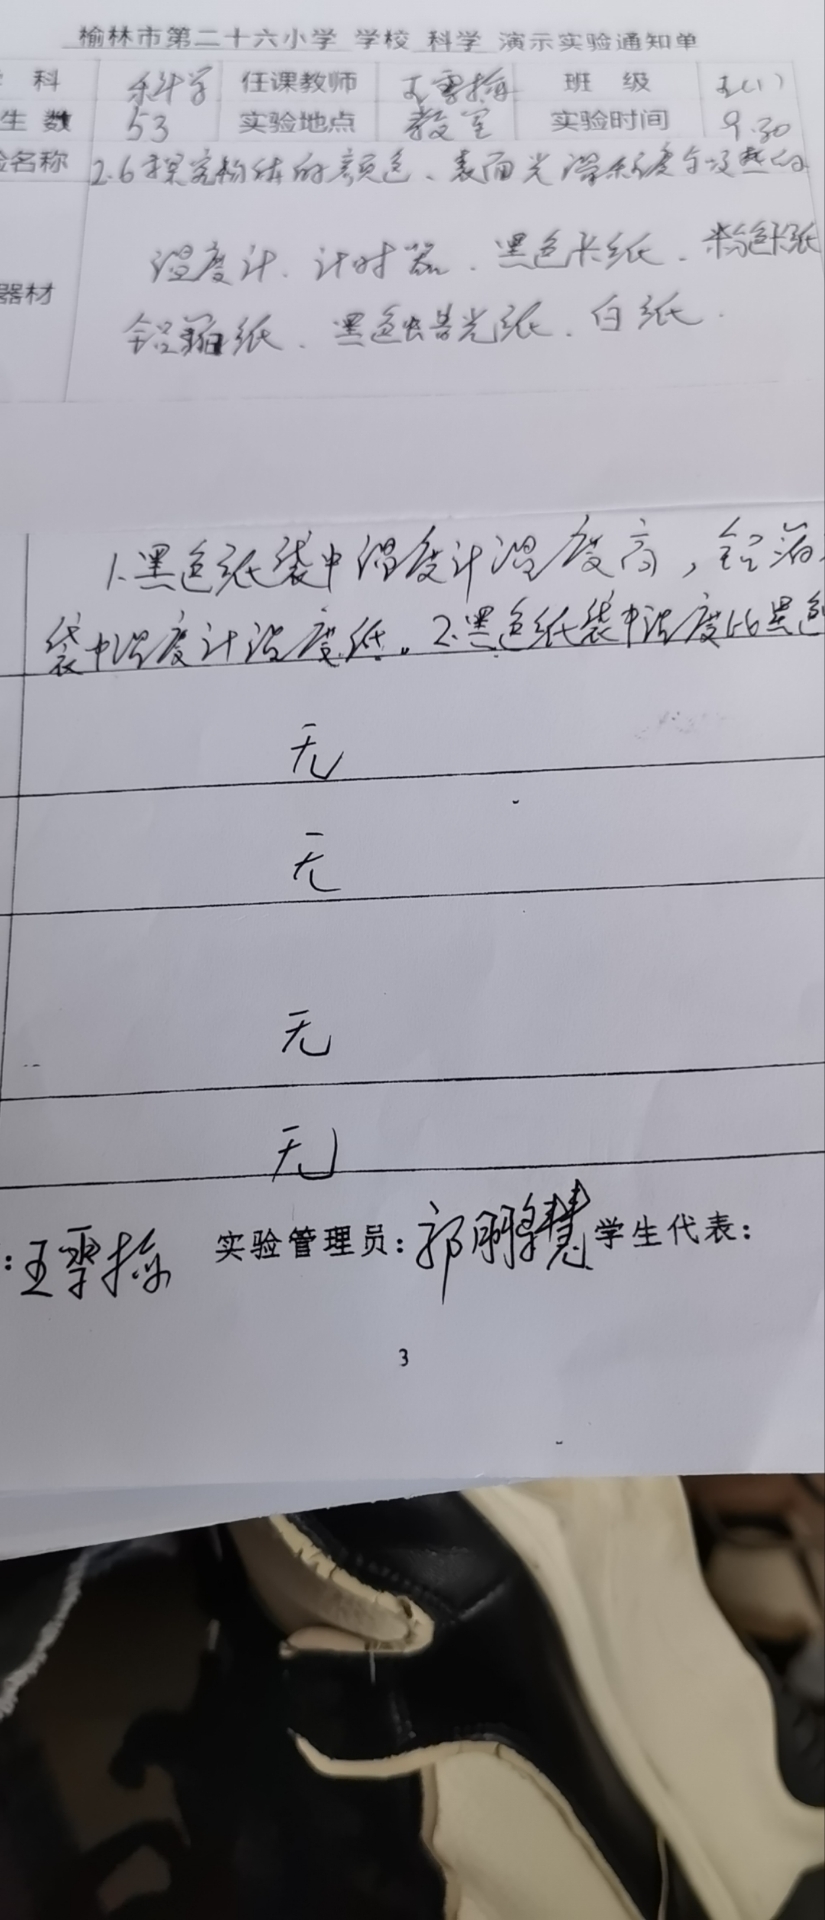 榆林市第二十六小学 学校 科学 演示实验通知单
科 科学 任课教师 王雪梅 班 级 五(1)
生 数 53 实验地点 教室 实验时间 9.30
名称 2.6探究物体的颜色、表面光滑程度与吸热的
器材 温度计、计时器、黑色卡纸、粉色卡纸
铝箔纸、黑色蜡光纸、白纸.
1.黑色纸袋中温度计温度高,铝箔
袋中温度计温度低。2.黑色纸袋中温度比黑色
无
无
无
无
:王雪梅 实验管理员:郭 慧 学生代表:
3